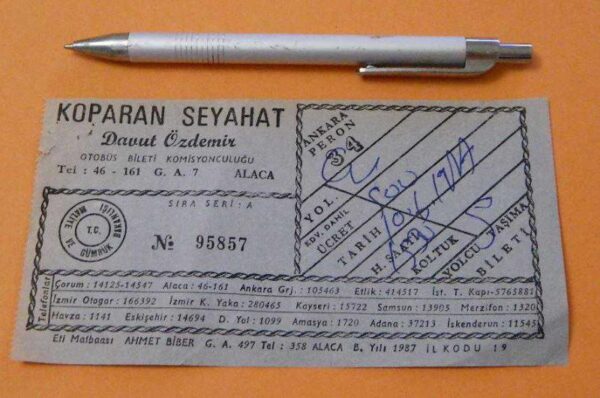 KOPARAN SEYAHAT
Davut Özdemir
OTOBÜS BİLETİ KOMİSYONCULUĞU
Tel : 46 - 161 G. A. 7 ALACA
SIRA SERİ : A
T.C.
MALİYE VE GÜMRÜK BAKANLIĞI
№ 95857
ANKARA
PERON
34
YOL.
EDV. DAHİL
ÜCRET
TARİH
H. SAATİ
KOLTUK
YOLCU TAŞIMA
BİLETİ
5
Telefonlar
Çorum : 14125-14547 Alaca : 46-161 Ankara Grj. : 105463 Etlik : 414517 İst. T. Kapı-5765881
İzmir Otogar : 166392 İzmir K. Yaka : 280465 Kayseri : 15722 Samsun : 13905 Merzifon : 1320
Havza : 1141 Eskişehir : 14694 D. Yol : 1099 Amasya : 1720 Adana : 37213 İskenderun : 11545
Eti Matbaası AHMET BİBER G. A. 497 Tel : 358 ALACA B. Yılı 1987 İL KODU 19